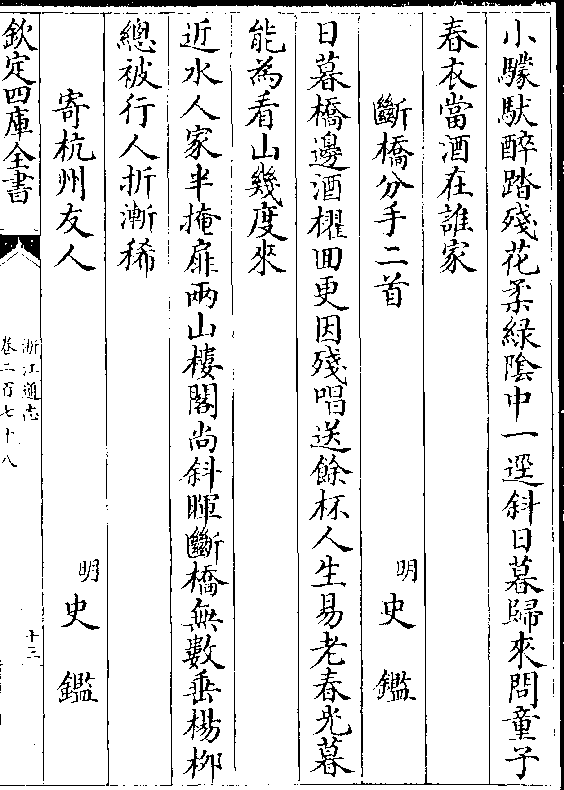 小驟馱醉踏殘花柔緑陰中一逕斜日暮歸來問童子
春衣當酒在誰家
斷橋分手二首 明史鑑
日暮橋邊酒櫂回更因殘唱送餘杯人生易老春光暮
能為看山幾度來
近水人家半掩扉兩山樓閣尚斜暉斷橋無數垂楊柳
總被行人折漸稀
寄杭州友人 明史鑑
欽定四庫全書
浙江通志
卷二百七十八
十三